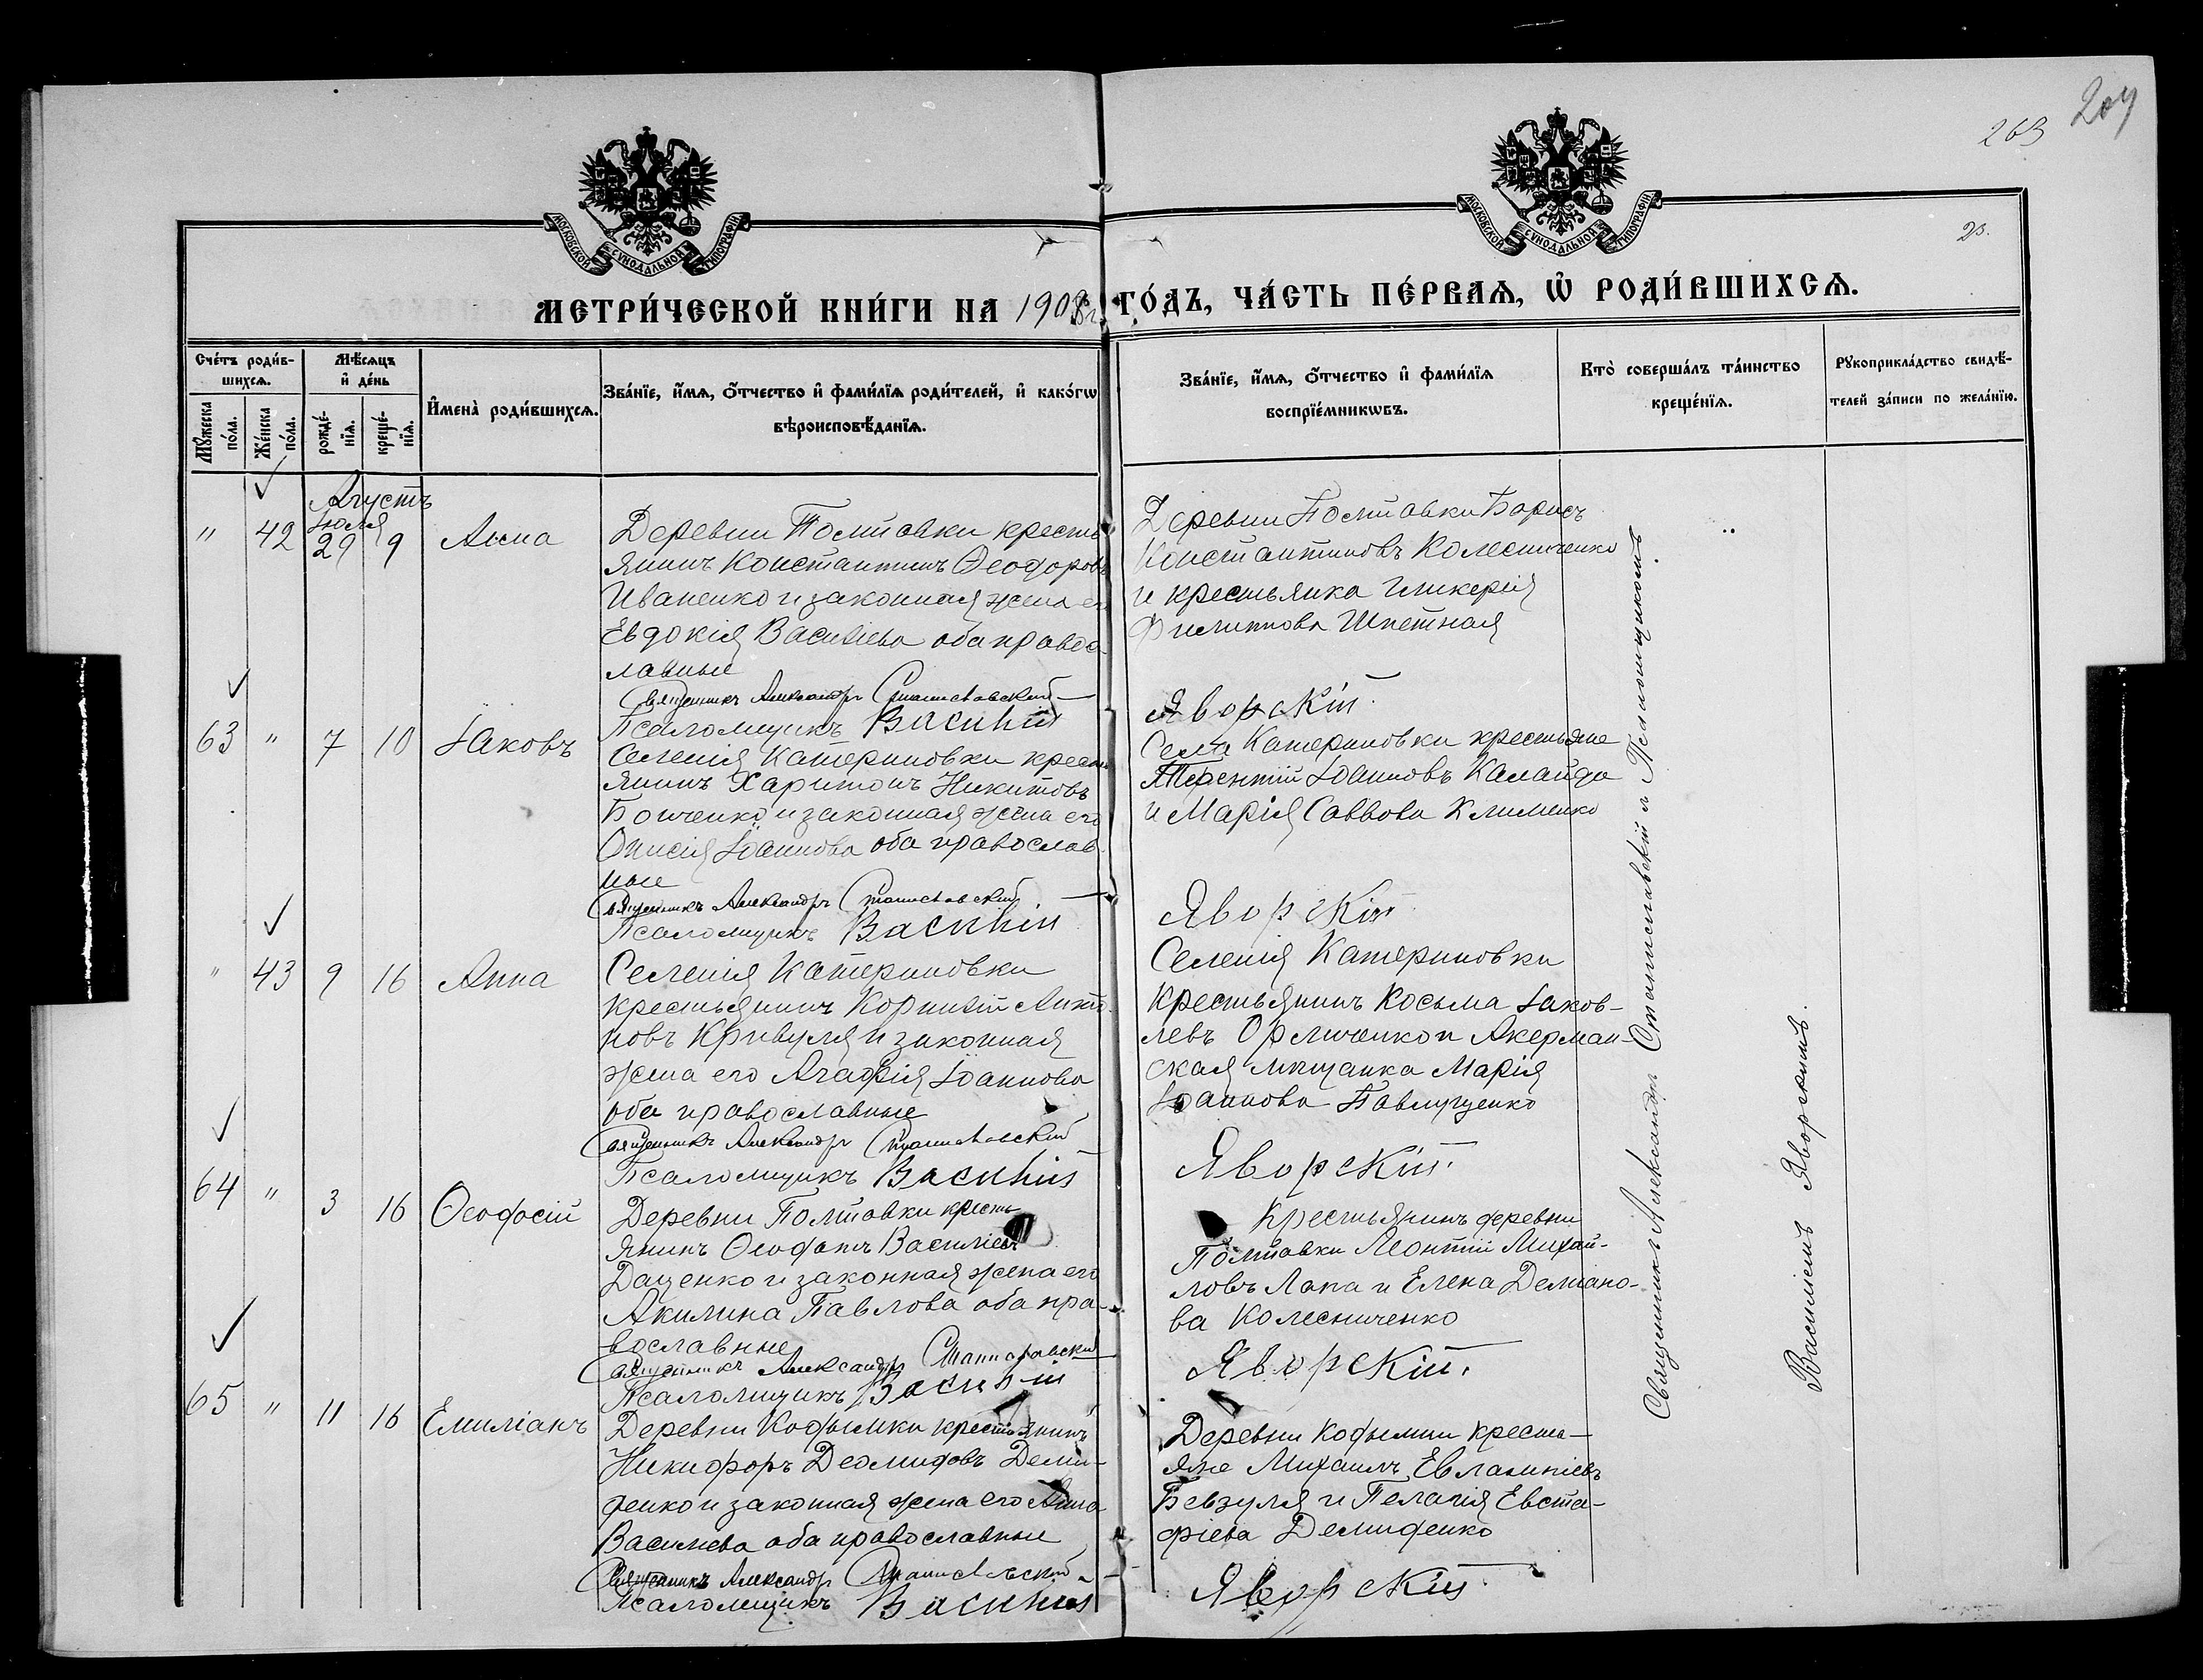 204
263
23.
МОСКОВСКОЙ СѴНОДАЛЬНОЙ ТИПОГРАФІИ
МОСКОВСКОЙ СѴНОДАЛЬНОЙ ТИПОГРАФІИ
МЕТРИ́ЧЕСКОЙ КНИ́ГИ НА 1908 г. ГО́ДЪ, ЧА́СТЬ ПЕ́РВАѦ, Ѡ҆ РОДИ́ВШИХСѦ.
Сче́тъ роди́в-
шихсѧ.
Мꙋ́жеска по́ла.
Же́нска по́ла.
Мѣ́сѧцъ и҆ де́нь
рожде́-
нїѧ.
креще́-
нїѧ.
И҆мена̀ роди́вшихсѧ.
Зва́нїе, и҆́мѧ, ѻ҆́тчество и҆ фами́лїѧ роди́телей, и҆ како́гѡ
вѣроисповѣ́данїѧ.
Зва́нїе, и҆́мѧ, ѻ҆́тчество и҆ фами́лїѧ
воспрїе́мникѡвъ.
Кто̀ соверша́лъ та́инство
креще́нїѧ.
Рꙋкоприкла́дство свидѣ́-
телей за́писи по жела́нїю.
Августъ
" 42 Іюля 29 9 Анна
Деревни Полтавки кресть
янинъ Константинъ Ѳеодоровъ
Иваненко и законная жена его
Евдокія Василіева оба право-
лавные
Священникъ Александръ Станиславскій
Псаломщикъ Василій
Деревни Полтавки Борисъ
Константиновъ Колесниченко
и крестьянка Гликерія
Филиппова Шпетная
Яворскій.
63 " 7 10 Іаковъ
Селенія Катериновки кресть
янинъ Харитонъ Никитовъ
Бойченко и законная жена его
Онисія Іоаннова оба православ
ные
Священникъ Александръ Станиславскій
Псаломщикъ Василій
Села Катериновки крестьяне
Терентій Іоанновъ Калайда
и Марія Саввова Клименко
Яворскій
" 43 9 16 Анна
Селенія Катериновки
крестьянинъ Корнилій Анто
новъ Кривуля и законная
жена его Агафія Іоаннова
оба православные
Священникъ Александръ Станиславскій
Псаломщикъ Василій
Селенія Катериновки
Крестьянинъ Косьма Іаков-
левъ Орличенко и Акерман-
ская мѣщанка Марія
Іоаннова Павлущенко
Яворскій.
64 " 3 16 Ѳеодосій
Деревни Полтавки кресть
янинъ Ѳеофанъ Василіевъ
Даценко и законная жена его
Акилина Павлова оба пра-
вославные
Священникъ Александръ Станиславскій
Псаломщикъ Василій
Крестьянинъ деревни
Полтавки Леонтій Михай-
ловъ Лапа и Елена Деміано-
ва Колесниченко
Яворскій.
65 " 11 16 Емиліанъ
Деревни Кодымки крестьянинъ
Никифоръ Деомидовъ Деми-
денко и законная жена его Анна
Василіева оба православные
Священникъ Александръ Станиславскій
Псаломщикъ Василій
Деревни Кодымки кресть-
яне Михаилъ Евлампіевъ
Бевзуля и Пелагія Евста-
фіева Демиденко
Яворскій
Священникъ Александръ Станиславскій и Псаломщикомъ
Василіемъ Яворскимъ.